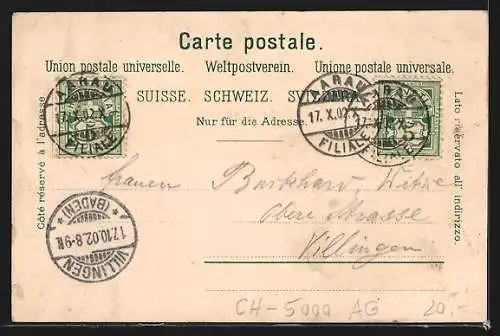 Carte postale.
Union postale universelle. Weltpostverein. Unione postale universale.
SUISSE. SCHWEIZ. SVIZZERA.
Nur für die Adresse.
Côté réservé à l'adresse.
Lato riservato all' indirizzo.
AARAU
17. X. 02. 7
FILIALE
AARAU
17. X. 02. 7
FILIALE
AARAU
FILIALE
Frauen Burkhard, Witwe
Obere Strasse
Villingen
* (BADEN) *
17.10.02.8-9N
VILLINGEN
CH-5000 AG 20.-